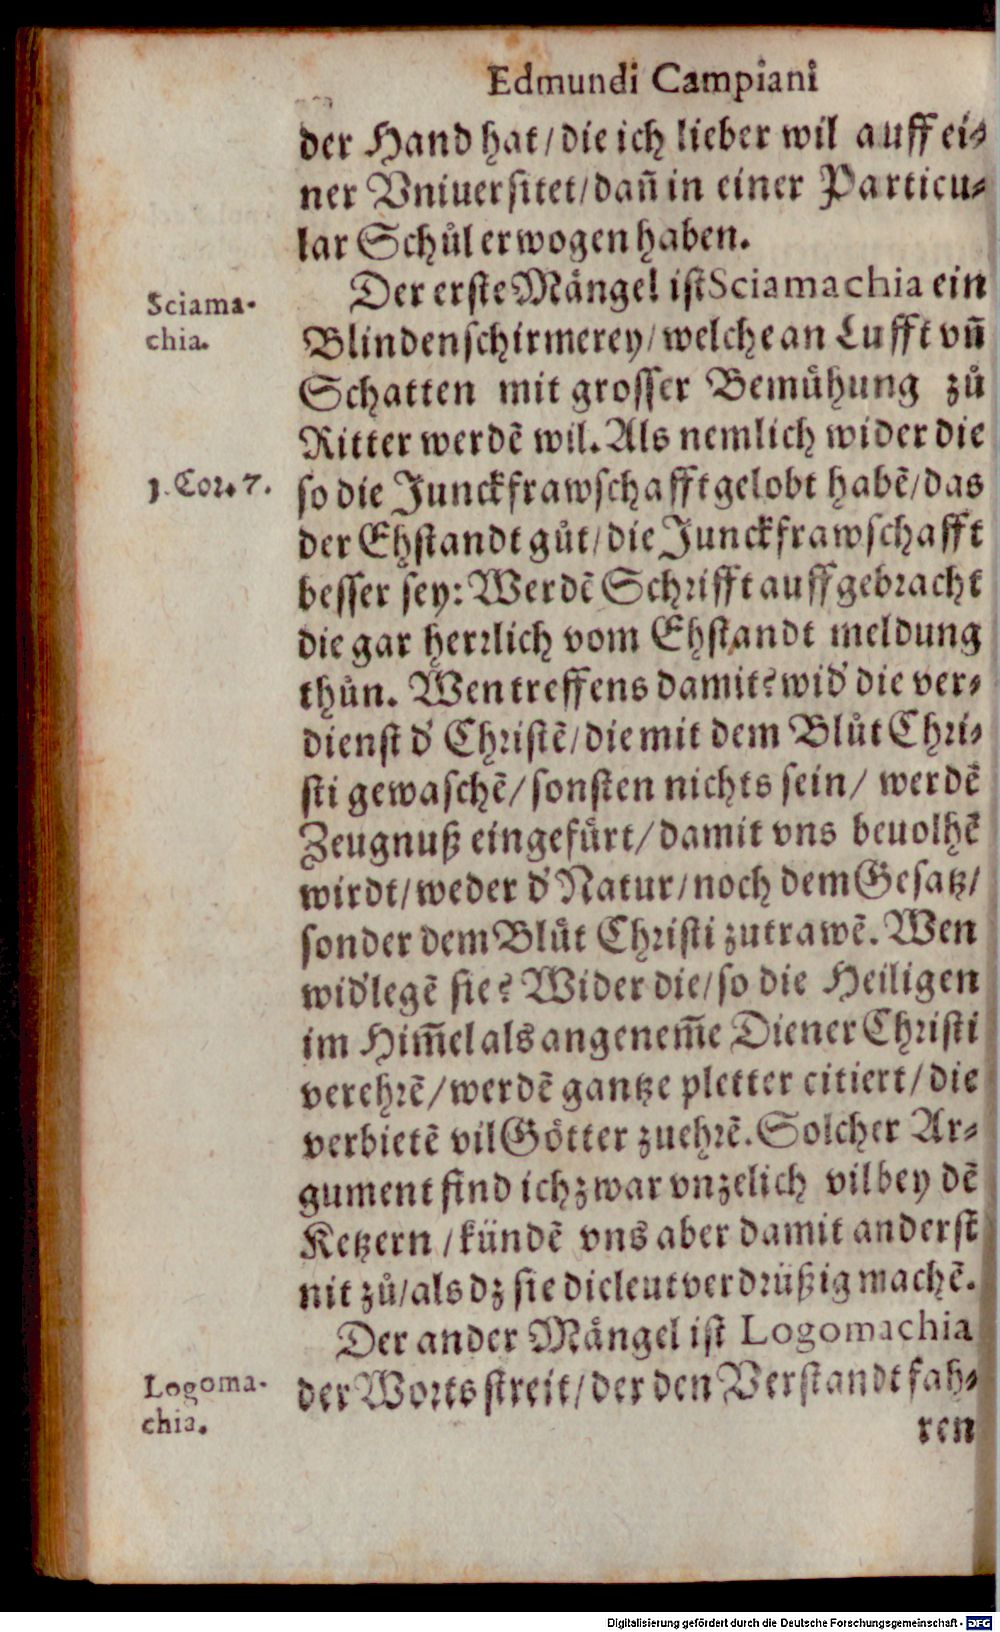 Edmundi Campiani
der Hand hat/die ich lieber wil auff ei⸗
ner Vniuersitet/dañ in einer Particu⸗
lar Schůl erwogen haben.
Der erste Mångel ist Sciamachia ein
Sciama-
chia.
Blindenschirmerey/welche an Lufft vñ
Schatten mit grosser Bemůhung zů
Ritter werdẽ wil. Als nemlich wider die
1. Cor. 7.
so die Junckfrawschafft gelobt habẽ/das
der Ehstandt gůt/die Junckfrawschafft
besser sey: Werdẽ Schrifft auffgebracht
die gar herrlich vom Ehstandt meldung
thůn. Wen treffens damit? wid' die ver⸗
dienst d' Christẽ/die mit dem Blůt Chri⸗
sti gewaschẽ/sonsten nichts sein/ werdẽ
Zeugnuß eingefůrt/damit vns beuolhẽ
wirdt/weder d' Natur/noch dem Gesatz/
sonder dem Blůt Christi zutrawẽ. Wen
wid'legẽ sie? Wider die/so die Heiligen
im Him̃el als angenem̃e Diener Christi
verehrẽ/werdẽ gantze pletter citiert/die
verbietẽ vil Götter zuehrẽ. Solcher Ar⸗
gument find ich zwar vnzelich vil bey dẽ
Ketzern /kündẽ vns aber damit anderst
nit zů/als dz sie die leut verdrüßig machẽ.
Der ander Mångel ist Logomachia
Logoma-
chia.
der Worts streit/der den Verstandt fah⸗
ren
Digitalisierung gefördert durch die Deutsche Forschungsgemeinschaft - DFG